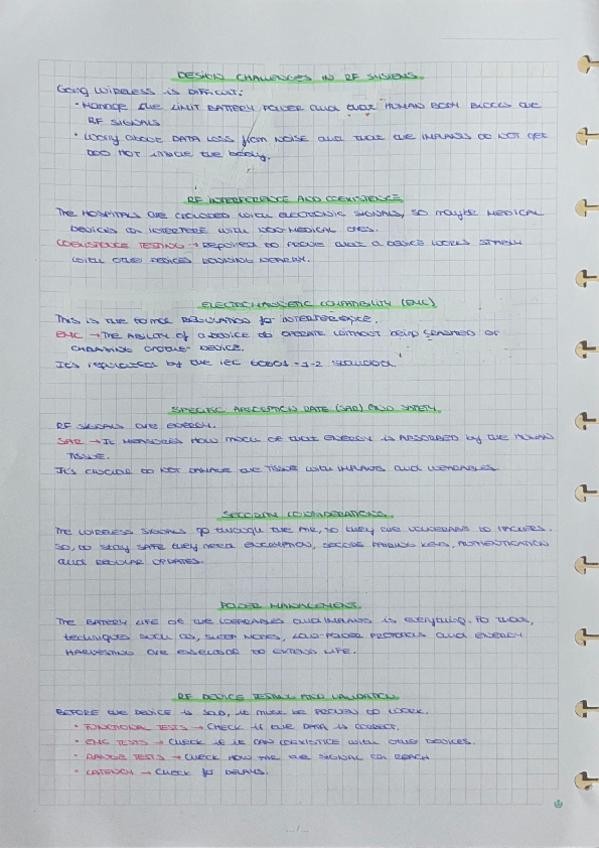 DESIGN CHALLENGES IN RF SYSTEMS.
Going WIRELESS is DIFFICULT:
• Manage the LIMIT BATTERY POWER and that HUMAN BODY BLOCKS the
RF SIGNALS
• Worry about DATA LOSS from NOISE and THAT the IMPLANTS DO NOT get
TOO HOT inside the body.
RF INTERFERENCE AND COEXISTENCE
The HOSPITALS are CROWDED with ELECTRONIC SIGNALS, SO maybe MEDICAL
DEVICES can INTERFERE with NOO-MEDICAL ONES.
COEXISTENCE TESTING → Required to PROVE that a DEVICE WORKS
with other DEVICES RUNNING NEARBY.
ELECTROMAGNETIC COMPATIBILITY (EMC)
This is the formal REGULATION for INTERFERENCE.
EMC → The ABILITY of a device to OPERATE WITHOUT being or
another DEVICE.
It's by the IEC 60601-1-2 standard
SPECIFIC ABSORPTION RATE (SAR) and SAFETY.
RF SIGNALS are ENERGY.
SAR → It MEASURES HOW MUCH OF that ENERGY is ABSORBED by the HUMAN
TISSUE.
It's CRUCIAL to NOT DAMAGE the TISSUE with IMPLANTS and WEARABLES
SECURITY CONSIDERATIONS.
The WIRELESS SIGNALS go through the AIR, so they are to HACKERS.
So, to stay SAFE they need ENCRYPTION, SECURE PAIRING KEYS, AUTHENTICATION
and REGULAR UPDATES.
POWER MANAGEMENT.
The BATTERY LIFE OF the WEARABLES and IMPLANTS is everything. that,
techniques such as, SLEEP MODES, LOW-POWER PROTOCOLS and ENERGY
HARVESTING are to EXTEND LIFE.
RF DEVICE TESTING AND VALIDATION
BEFORE the DEVICE is SOLD, it must be PROVEN to WORK.
• FUNCTIONAL TESTS → CHECK if the DATA is CORRECT.
• EMC TESTS → CHECK if it CAN with other DEVICES.
• RANGE TESTS → CHECK HOW FAR the SIGNAL can REACH
• LATENCY → CHECK for DELAYS.